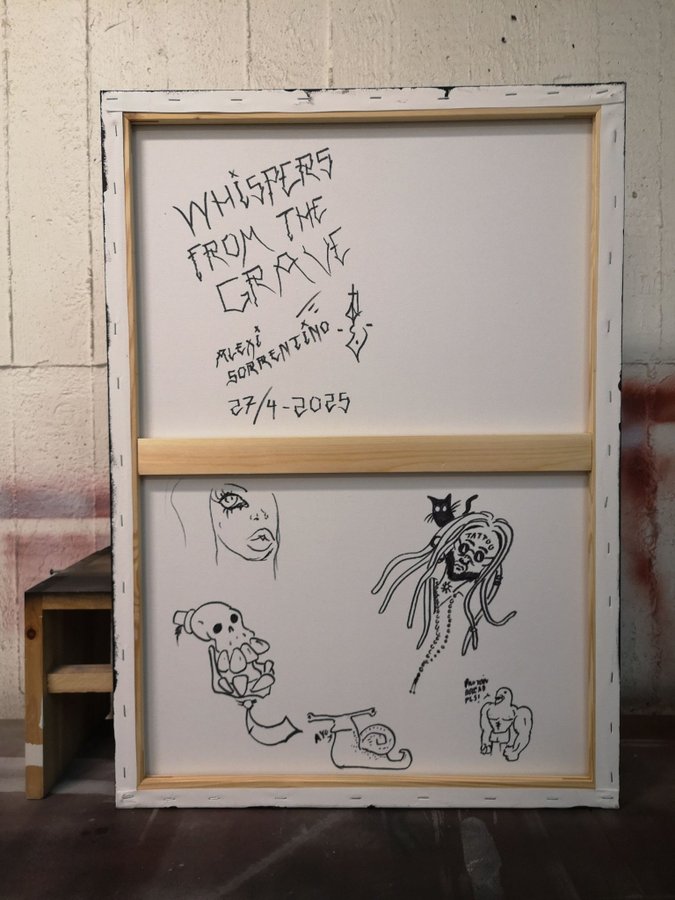 WHiSPERS
FROM THE
GRAVE
ALEXi
SORRENTiNO
27/4-2025
TATTOO
AYO
PLS!